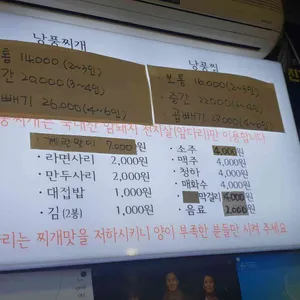 낭풍찌개
낭풍찜
14,000(2~3인)
보통 16,000(2~3인)
20,000(3~4인)
중간
빼기 26,000(4~6인)
찌개는 국내산 암돼지 전지살(앞다리)만 이용합니다
계란말이 7,000원
라면사리 2,000원
만두사리 2,000원
대접밥 1,000원
김(2봉) 1,000원
소주 4,000원
맥주 4,000원
청하 4,000원
매화수 4,000원
막걸리 4,000원
음료 2,000원
리는 찌개맛을 저하시키니 양이 부족한 분들만 시켜 주세요